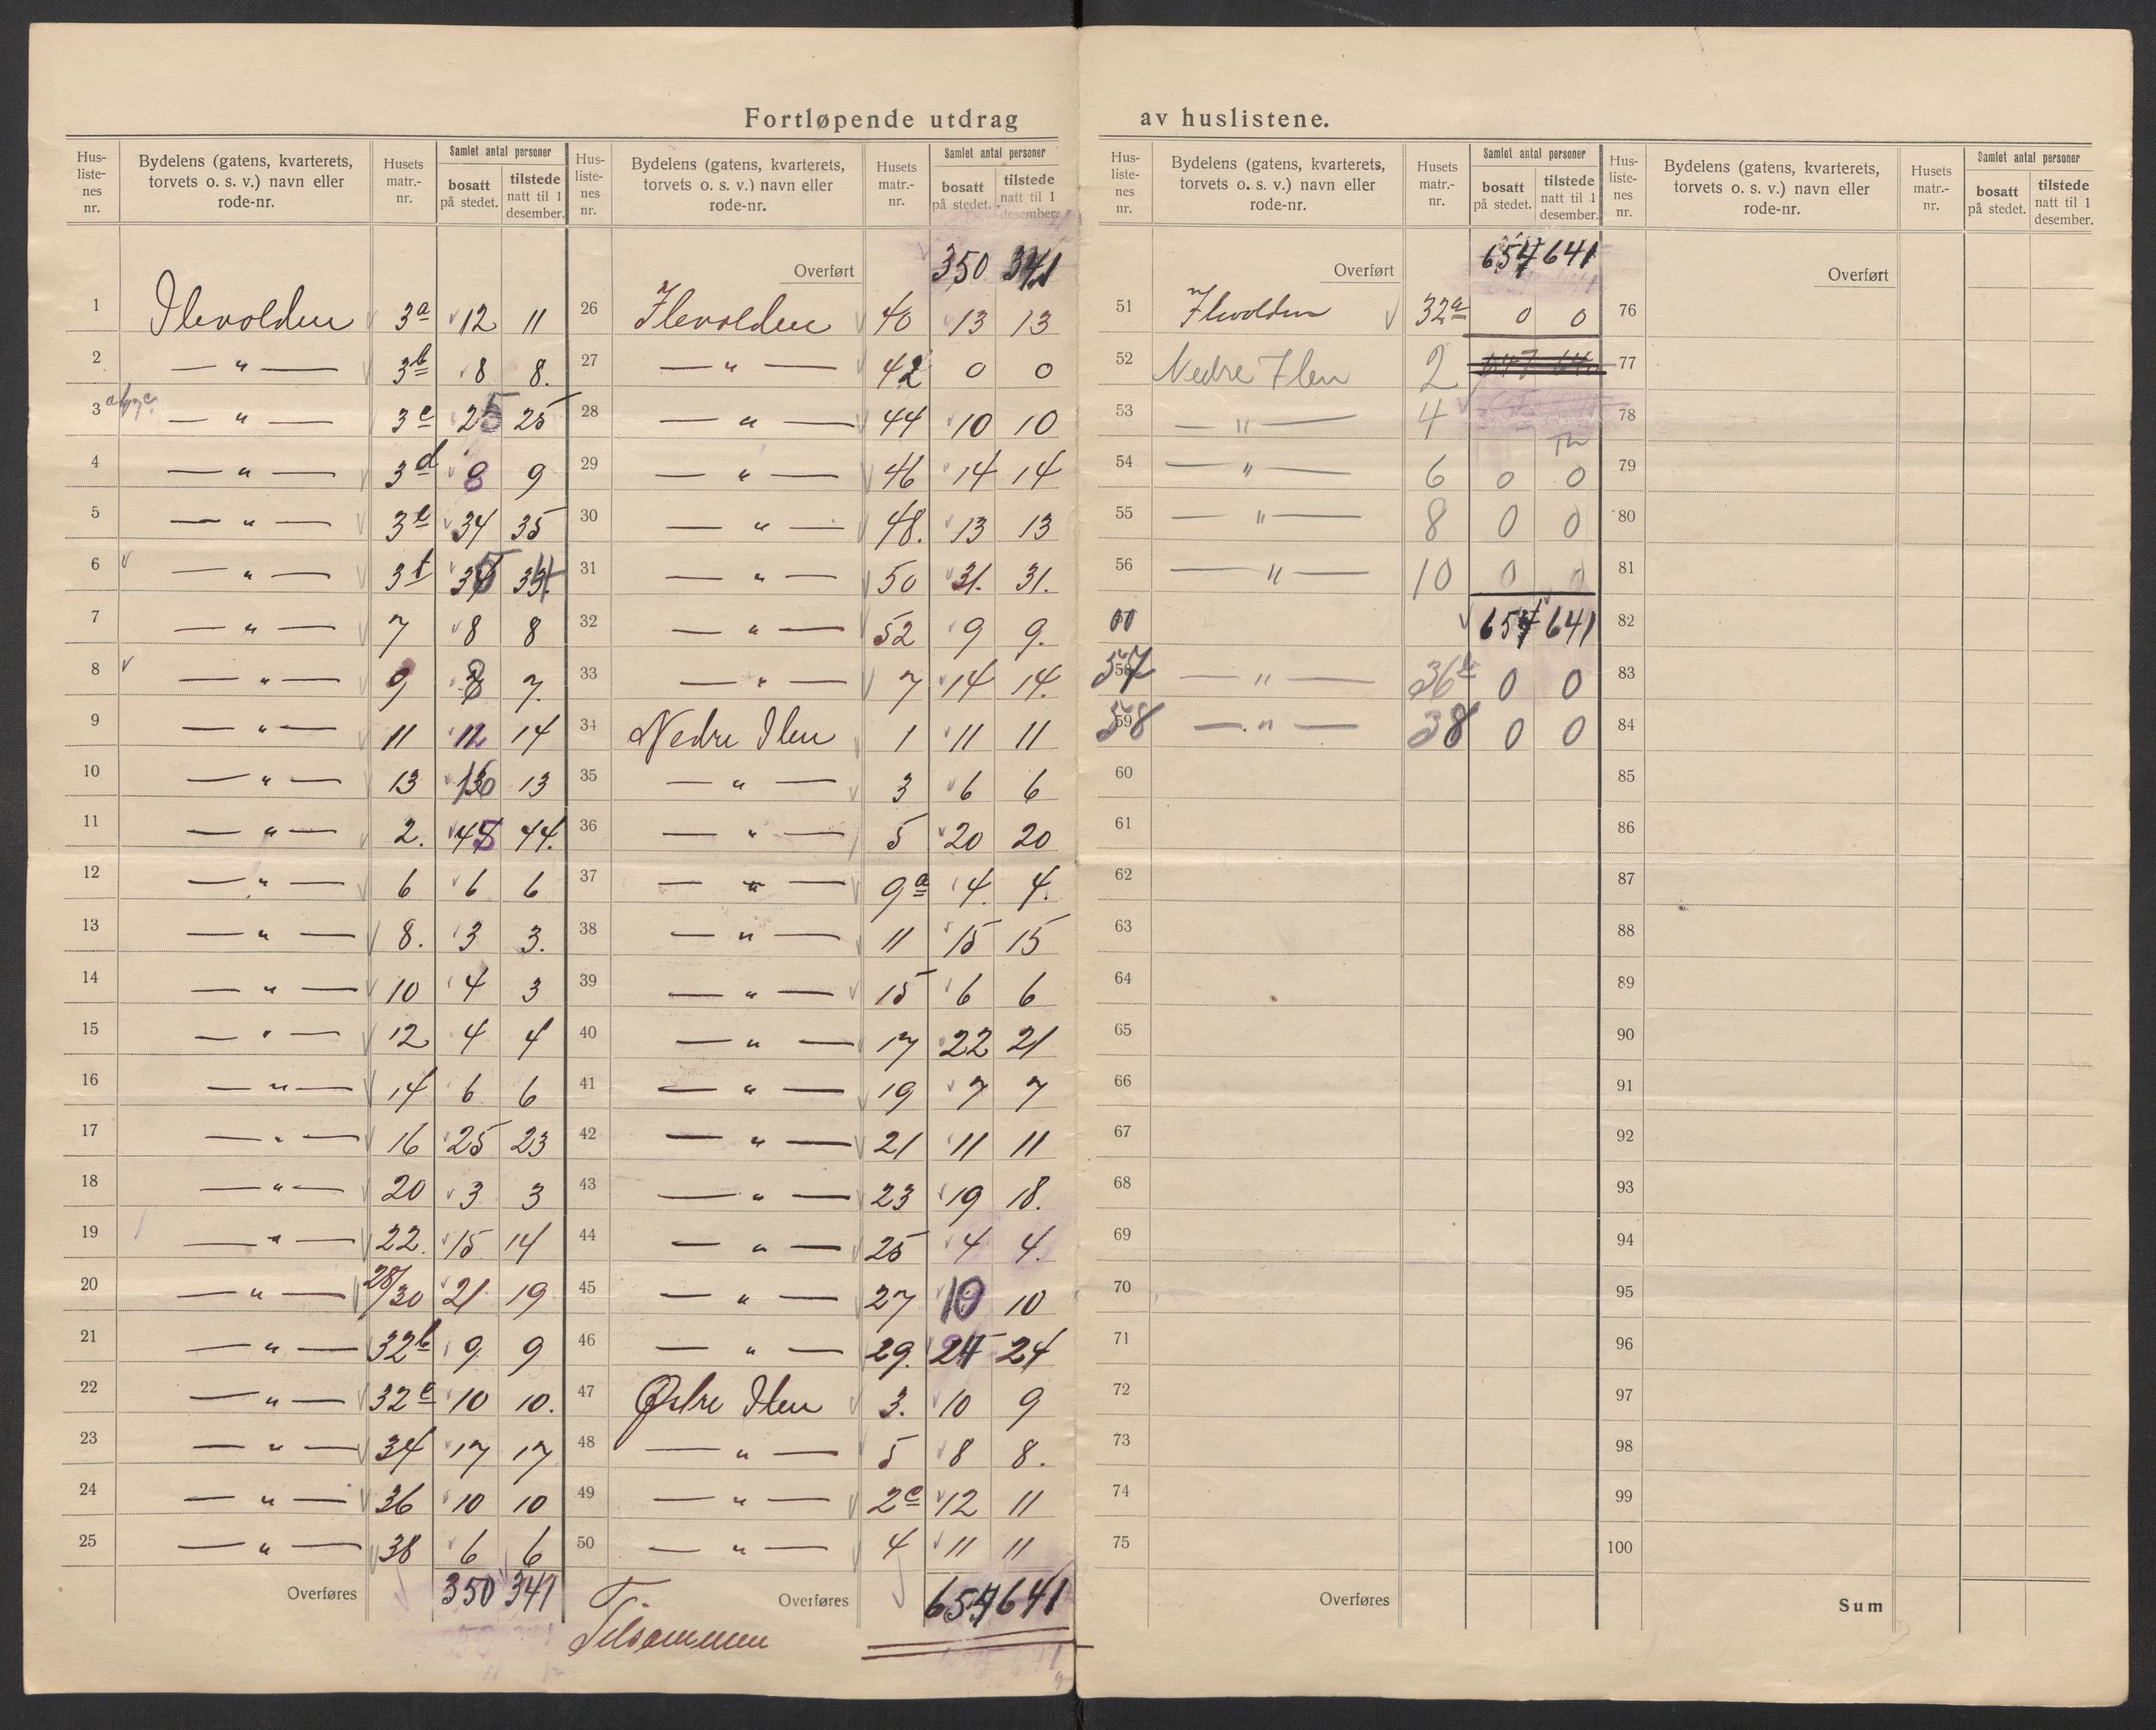 Fortløpende utdrag av huslistene.
Hus-liste-nes nr. | Bydelens (gatens, kvarterets, torvets o. s. v.) navn eller rode-nr. | Husets matr.-nr. | Samlet antal personer | bosatt på stedet. | tilstede natt til 1 desember.
1 Ilevolden 3a 12 11
2 — " — 3b 8 8.
3 — " — 3c 25 25
4 — " — 3d 8 9
5 — " — 3e 34 35
6 — " — 3f
7 — " — 7 8 8
8 — " — 9 8 7.
9 — " — 11 12 14
10 — " — 13 13
11 — " — 2. 45 44.
12 — " — 6 6 6
13 — " — 8. 3 3.
14 — " — 10 4 3
15 — " — 12 4 4
16 — " — 14 6 6
17 — " — 16 25 23
18 — " — 20 3 3
19 — " — 22. 15 14
20 — " — 28/30 21 19
21 — " — 32b 9 9
22 — " — 32c 10 10.
23 — " — 34 17 17
24 — " — 36 10 10
25 — " — 38 6 6
Overføres 350 341
Hus-liste-nes nr. | Bydelens (gatens, kvarterets, torvets o. s. v.) navn eller rode-nr. | Husets matr.-nr. | Samlet antal personer | bosatt på stedet. | tilstede natt til 1 desember.
Overført 350 341
26 Ilevolden 40 13 13
27 — " — 42 0 0
28 — " — 44 10 10
29 — " — 46 14 14
30 — " — 48. 13 13
31 — " — 50 31. 31.
32 — " — 52 9 9.
33 — " — 7 14 14.
34 Nedre Ilen 1 11 11
35 — " — 3 6 6
36 — " — 5 20 20
37 — " — 9a 4. 4.
38 — " — 11 15 15
39 — " — 15 6 6
40 — " — 17 22 21
41 — " — 19 7 7
42 — " — 21 11 11
43 — " — 23 19 18.
44 — " — 25 4 4.
45 — " — 27 10 10
46 — " — 29. 24
47 Øvre Ilen 3. 10 9
48 — " — 5 8 8.
49 — " — 2c 12 11
50 — " — 4 11 11
Overføres 657 641
Tilsammen
Hus-liste-nes nr. | Bydelens (gatens, kvarterets, torvets o. s. v.) navn eller rode-nr. | Husets matr.-nr. | Samlet antal personer | bosatt på stedet. | tilstede natt til 1 desember.
Overført 657 641
51 Ilevolden 32a 0 0
52 Nedre Ilen 2
53 — " — 4
54 — " — 6 0 0
55 — " — 8 0 0
56 — " — 10 0 0
657 641
57 — " — 36b 0 0
58 — " — 38 0 0
60
61
62
63
64
65
66
67
68
69
70
71
72
73
74
75
Overføres
Hus-liste-nes nr. | Bydelens (gatens, kvarterets, torvets o. s. v.) navn eller rode-nr. | Husets matr.-nr. | Samlet antal personer | bosatt på stedet. | tilstede natt til 1 desember.
Overført
76
77
78
79
80
81
82
83
84
85
86
87
88
89
90
91
92
93
94
95
96
97
98
99
100
Sum